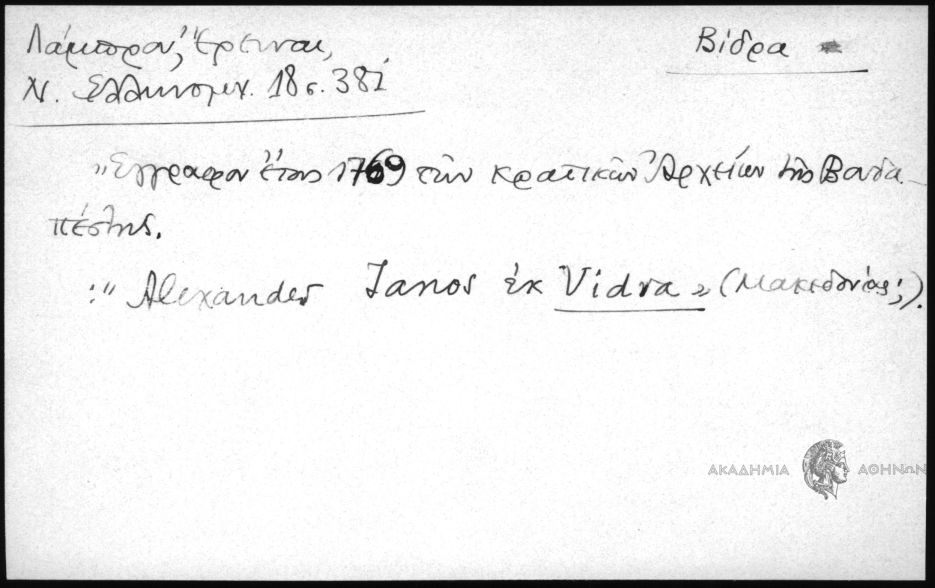 Λάμπρου, Έρευναι,
Ν. Ελληνομν. 18 σ. 381
Βίδρα
"Έγγραφον έτους 1769 των κρατικών Αρχείων της Βουδα-
πέστης.
:" Alexander Janos εκ Vidra" (Μακεδονίας;).
ΑΚΑΔΗΜΙΑ ΑΘΗΝΩΝ